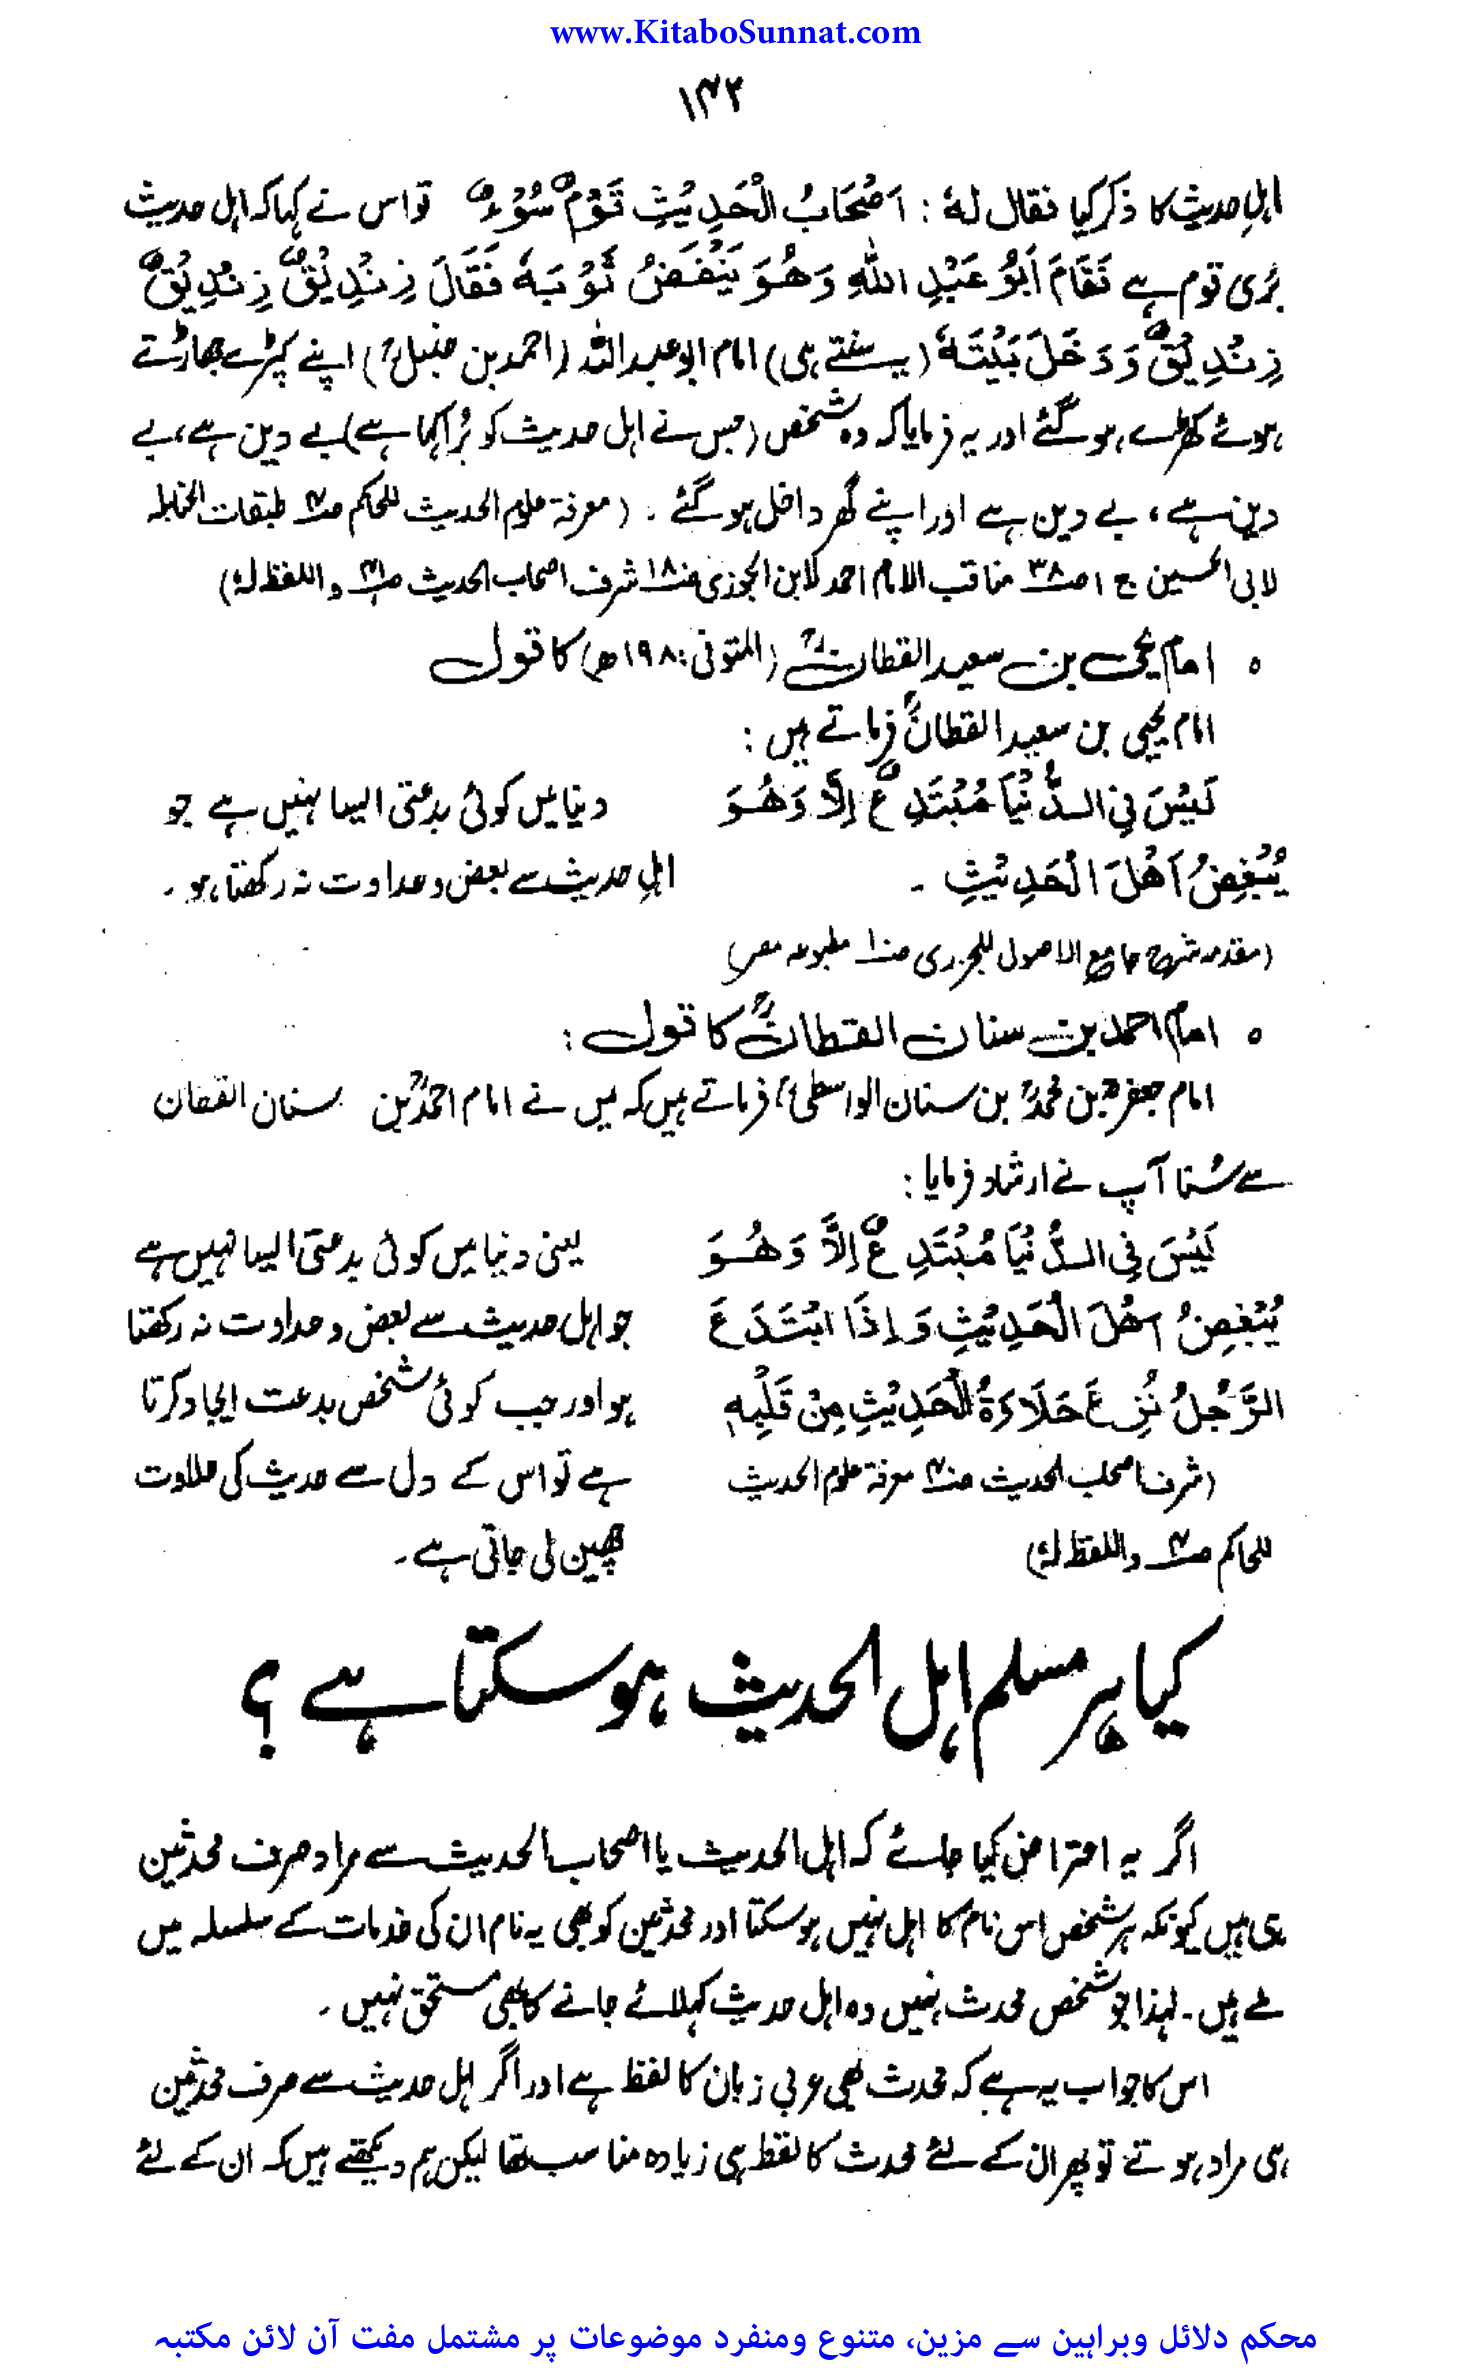 www.KitaboSunnat.com
۱۴۲
اہلِ حدیث کا ذکر کیا فقال لہٗ : اَصْحَابُ الْحَدِیْثِ قَوْمٌ سُوْءٌ تو اس نے کہا کہ اہل حدیث
بُری قوم ہے فَقَامَ اَبُوْ عَبْدِ اللّٰہِ وَھُوَ یَنْفَضُ ثَوْبَہٗ فَقَالَ زِنْدِیْقٌ زِنْدِیْقٌ
زِنْدِیْقٌ وَدَخَلَ بَیْتَہٗ (یہ سنتے ہی) امام ابوعبداللہ (احمد بن حنبلؒ) اپنے کپڑے جھاڑتے
ہوئے کھڑے ہوگئے اور یہ فرمایا کہ وہ شخص (جس نے اہل حدیث کو بُرا کہا ہے) بے دین ہے، بے
دین ہے، بے دین ہے اور اپنے گھر داخل ہوگئے ۔ (معرفۃ علوم الحدیث للحاکم صـ۴ طبقات الحنابلہ
لابی الحسین ج ۱ صـ۳۸ مناقب الامام احمد لابن الجوزی صـ۱۸۰ شرف اصحاب الحدیث صـ۴۱ واللفظ لہٗ)
○ امام یحیٰی بن سعید القطانؒ (المتوفی: ۱۹۸ھ) کا قول
امام یحییٰ بن سعید القطانؒ فرماتے ہیں :
لَیْسَ فِی الدُّنْیَا مُبْتَدِعٌ اِلَّا وَھُوَ دنیا میں کوئی بدعتی ایسا نہیں ہے جو
یُبْغِضُ اَھْلَ الْحَدِیْثِ ۔ اہلِ حدیث سے بغض و عداوت نہ رکھتا ہو ۔
(مقدمہ شرح جامع الاصول للجزری صـ۱۰ مطبوعہ مصر)
○ امام احمد بن سنان القطانؒ کا قول :
امام جعفرؒ بن محمدؒ بن سنان الواسطیؒ فرماتے ہیں کہ میں نے امام احمدؒ بن سنان القطان
سے سُنا آپ نے ارشاد فرمایا :
لَیْسَ فِی الدُّنْیَا مُبْتَدِعٌ اِلَّا وَھُوَ یعنی دنیا میں کوئی بدعتی ایسا نہیں ہے
یُبْغِضُ اَھْلَ الْحَدِیْثِ وَاِذَا ابْتَدَعَ جو اہل حدیث سے بغض و عداوت نہ رکھتا
الرَّجُلُ نُزِعَ حَلَاوَۃُ الْحَدِیْثِ مِنْ قَلْبِہٖ ہو اور جب کوئی شخص بدعت ایجاد کرتا
(شرف اصحاب الحدیث صـ۴۰ معرفۃ علوم الحدیث ہے تو اس کے دل سے حدیث کی حلاوت
للحاکم صـ۴ واللفظ لہٗ) چھین لی جاتی ہے ۔
کیا ہر مسلم اہل الحدیث ہو سکتا ہے ؟
اگر یہ اعتراض کیا جائے کہ اہل الحدیث یا اصحاب الحدیث سے مراد صرف محدثین
ہی ہیں کیونکہ ہر شخص اس نام کا اہل نہیں ہو سکتا اور محدثین کو بھی یہ نام ان کی خدمات کے سلسلہ میں
ملے ہیں ۔ لہذا جو شخص محدث نہیں وہ اہل حدیث کہلائے جانے کا بھی مستحق نہیں ۔
اس کا جواب یہ ہے کہ محدث بھی عربی زبان کا لفظ ہے اور اگر اہل حدیث سے صرف محدثین
ہی مراد ہوتے تو پھر ان کے لئے محدث کا لفظ ہی زیادہ مناسب تھا لیکن ہم دیکھتے ہیں کہ ان کے لئے
محکم دلائل وبراہین سے مزین، متنوع ومنفرد موضوعات پر مشتمل مفت آن لائن مکتبہ